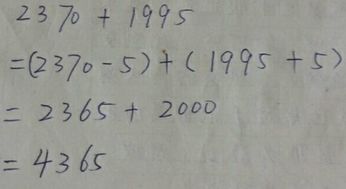 2370 + 1995
=(2370-5)+(1995+5)
= 2365 + 2000
= 4365